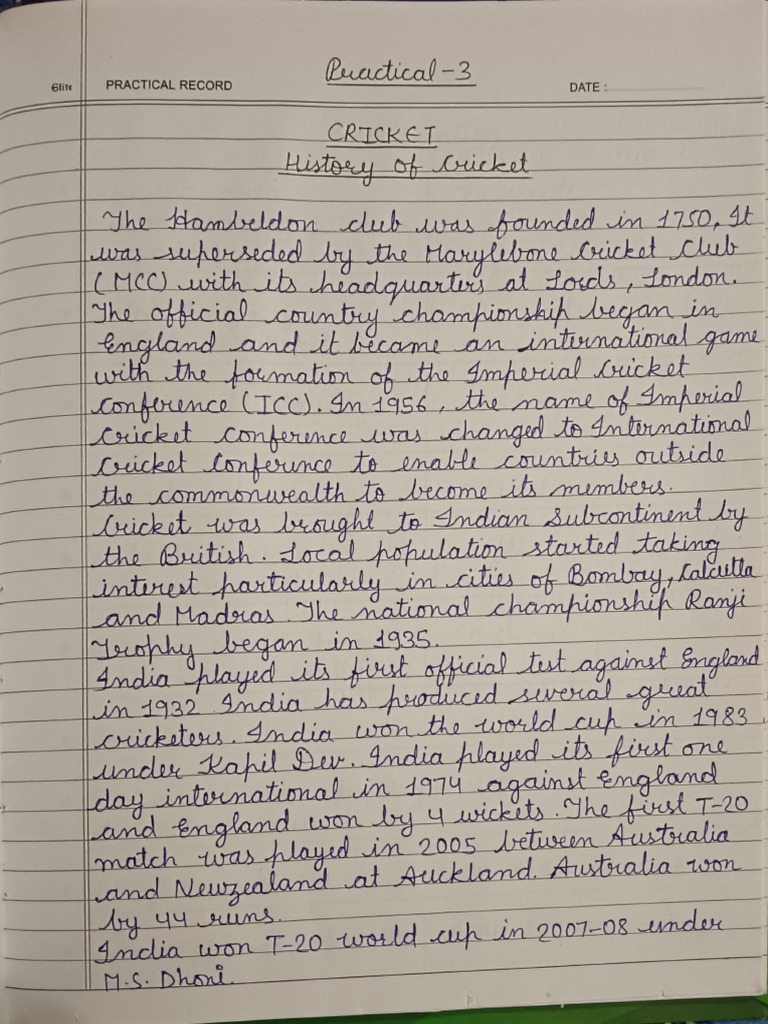 Practical-3
Elite PRACTICAL RECORD DATE :
CRICKET
History of Cricket
The Hambeldon club was founded in 1750, It
was superseded by the Marylebone Cricket Club
(MCC) with its headquarters at Lords, London.
The official country championship began in
England and it became an international game
with the formation of the Imperial Cricket
Conference (ICC). In 1956, the name of Imperial
Cricket Conference was changed to International
Cricket Conference to enable countries outside
the commonwealth to become its members.
Cricket was brought to Indian Subcontinent by
the British. Local population started taking
interest particularly in cities of Bombay, Calcutta
and Madras. The national championship Ranji
Trophy began in 1935.
India played its first official test against England
in 1932 India has produced several great
cricketers. India won the world cup in 1983
under Kapil Dev. India played its first one
day international in 1974 against England
and England won by 4 wickets. The first T-20
match was played in 2005 between Australia
and Newzealand at Auckland. Australia won
by 44 runs.
India won T-20 world cup in 2007-08 under
M.S. Dhoni.